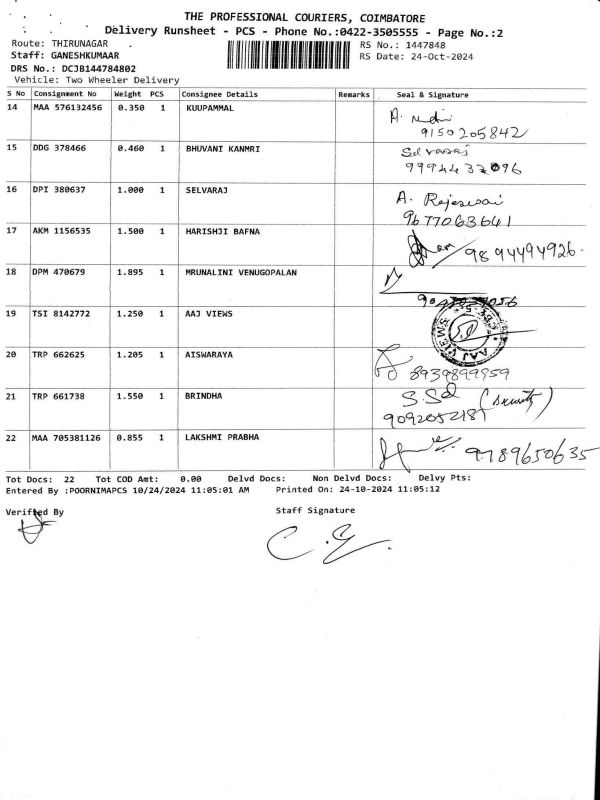 THE PROFESSIONAL COURIERS, COIMBATORE
Delivery Runsheet - PCS - Phone No.:0422-3505555 - Page No.:2
Route: THIRUNAGAR RS No.: 1447848
Staff: GANESHKUMAAR RS Date: 24-Oct-2024
DRS No.: DCJB144784802
Vehicle: Two Wheeler Delivery
S No Consignment No Weight PCS Consignee Details Remarks Seal & Signature
14 MAA 576132456 0.350 1 KUUPAMMAL A.
9150205842
15 DDG 378466 0.460 1 BHUVANI KANMRI Selvaraj
16 DPI 380637 1.000 1 SELVARAJ A.
9677063641
17 AKM 1156535 1.500 1 HARISHJI BAFNA
9894494926
18 DPM 470679 1.895 1 MRUNALINI VENUGOPALAN
19 TSI 8142772 1.250 1 AAJ VIEWS AAJ VIEWS
20 TRP 662625 1.205 1 AISWARAYA
8939899959
21 TRP 661738 1.550 1 BRINDHA S. Sel (Security)
9092052187
22 MAA 705381126 0.855 1 LAKSHMI PRABHA 9789650635
Tot Docs: 22 Tot COD Amt: 0.00 Delvd Docs: Non Delvd Docs: Delvy Pts:
Entered By :POORNIMAPCS 10/24/2024 11:05:01 AM Printed On: 24-10-2024 11:05:12
Verified By Staff Signature